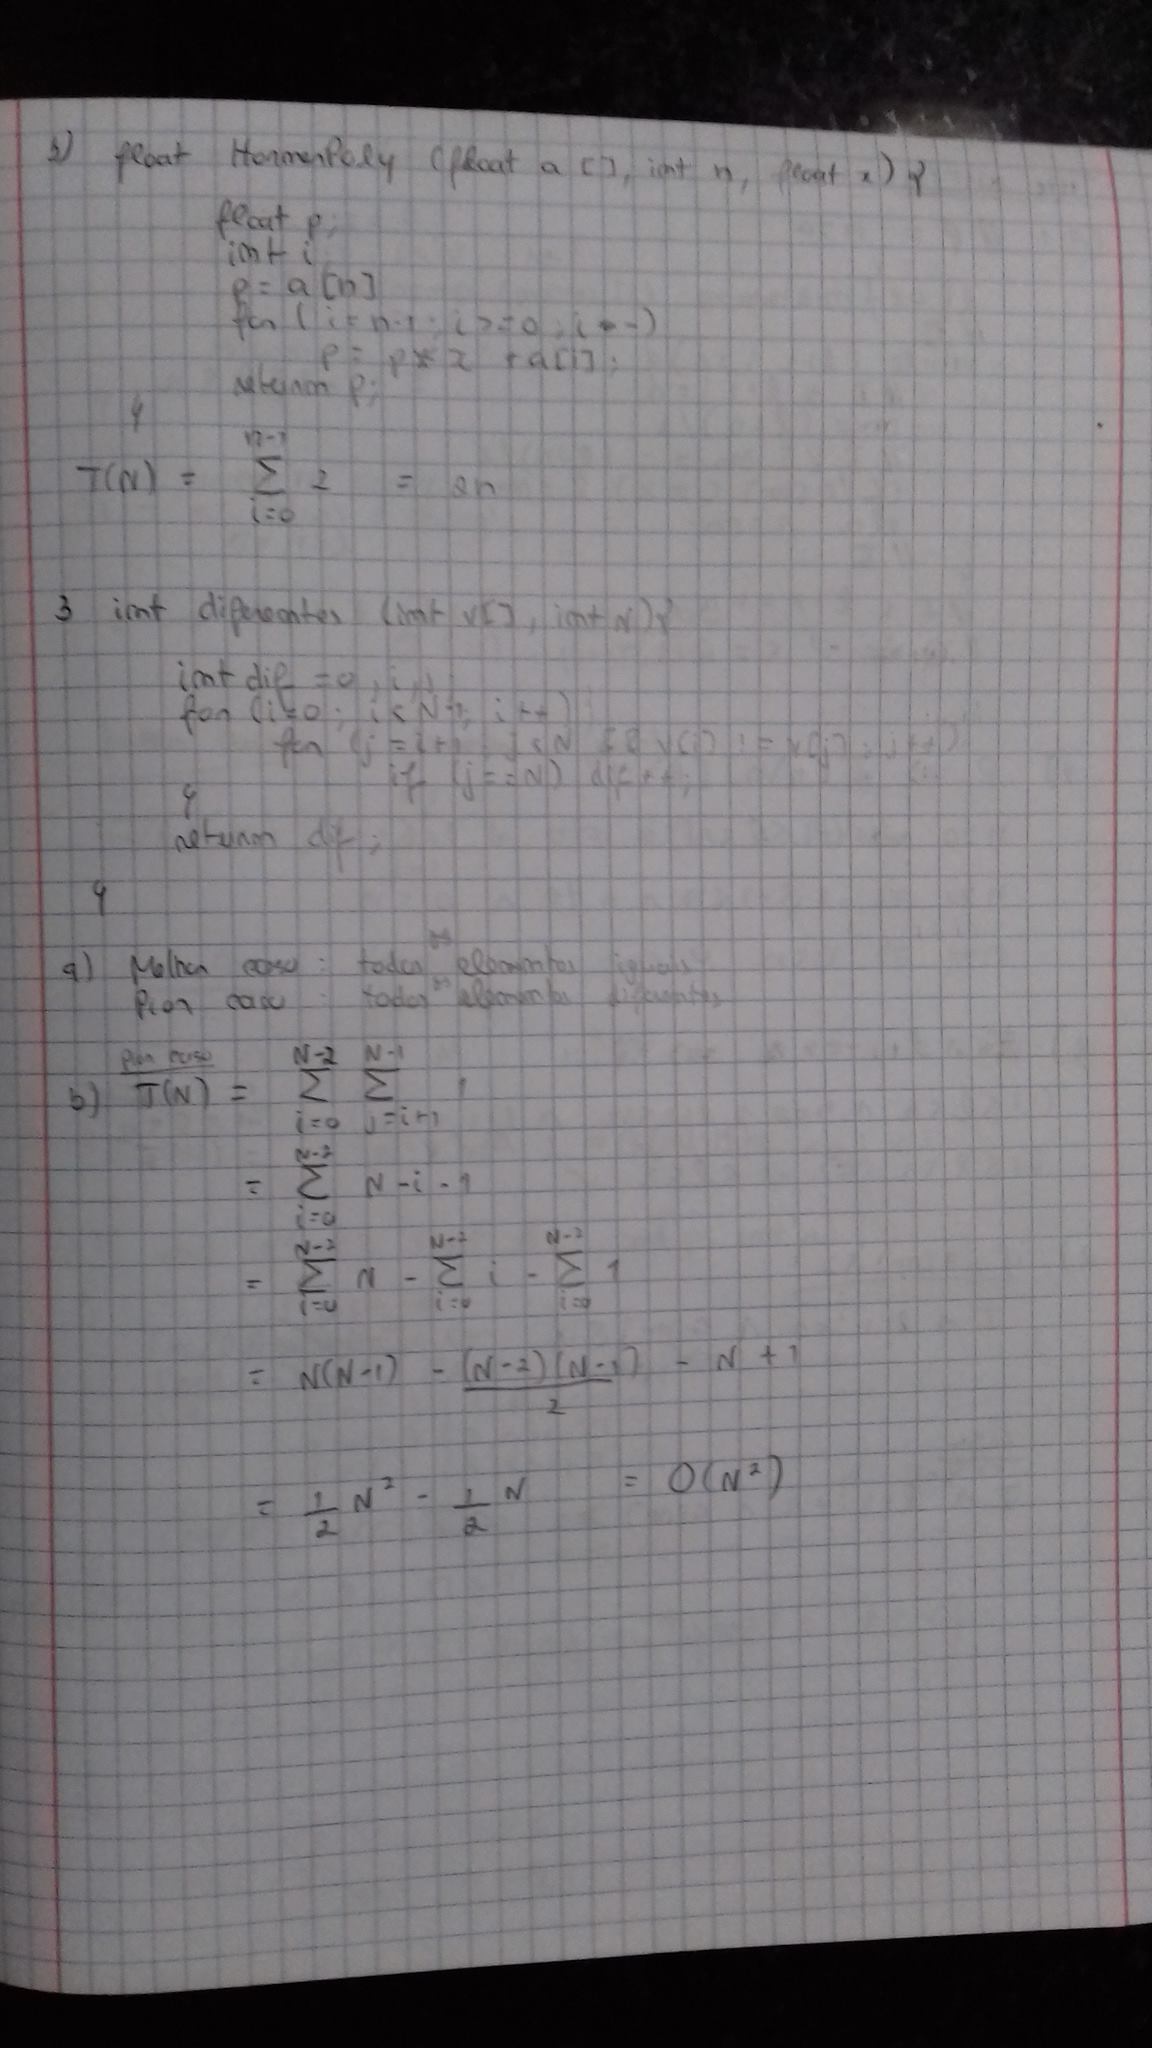 b) float HornerPoly (float a [], int n, float x) {
float p;
int i
p = a[n]
for (i = n-1; i >= 0; i--)
p = p * x + a[i];
return p;
}
T(N) = \sum_{i=0}^{n-1} 2 = 2n
3 int diferentes (int v[], int N) {
int dif = 0, i, j
for (i=0; i < N-1; i++)
for (j = i+1; j < N && v[i] != v[j]; j++)
if (j == N) dif++;
}
return dif;
}
a) Melhor caso : todos os elementos iguais
Pior caso : todos os elementos diferentes
pior caso
b) T(N) = \sum_{i=0}^{N-2} \sum_{j=i+1}^{N-1} 1
= \sum_{i=0}^{N-2} N - i - 1
= \sum_{i=0}^{N-2} N - \sum_{i=0}^{N-2} i - \sum_{i=0}^{N-2} 1
= N(N-1) - (N-2)(N-1)/2 - N + 1
= 1/2 N² - 1/2 N = O(N²)